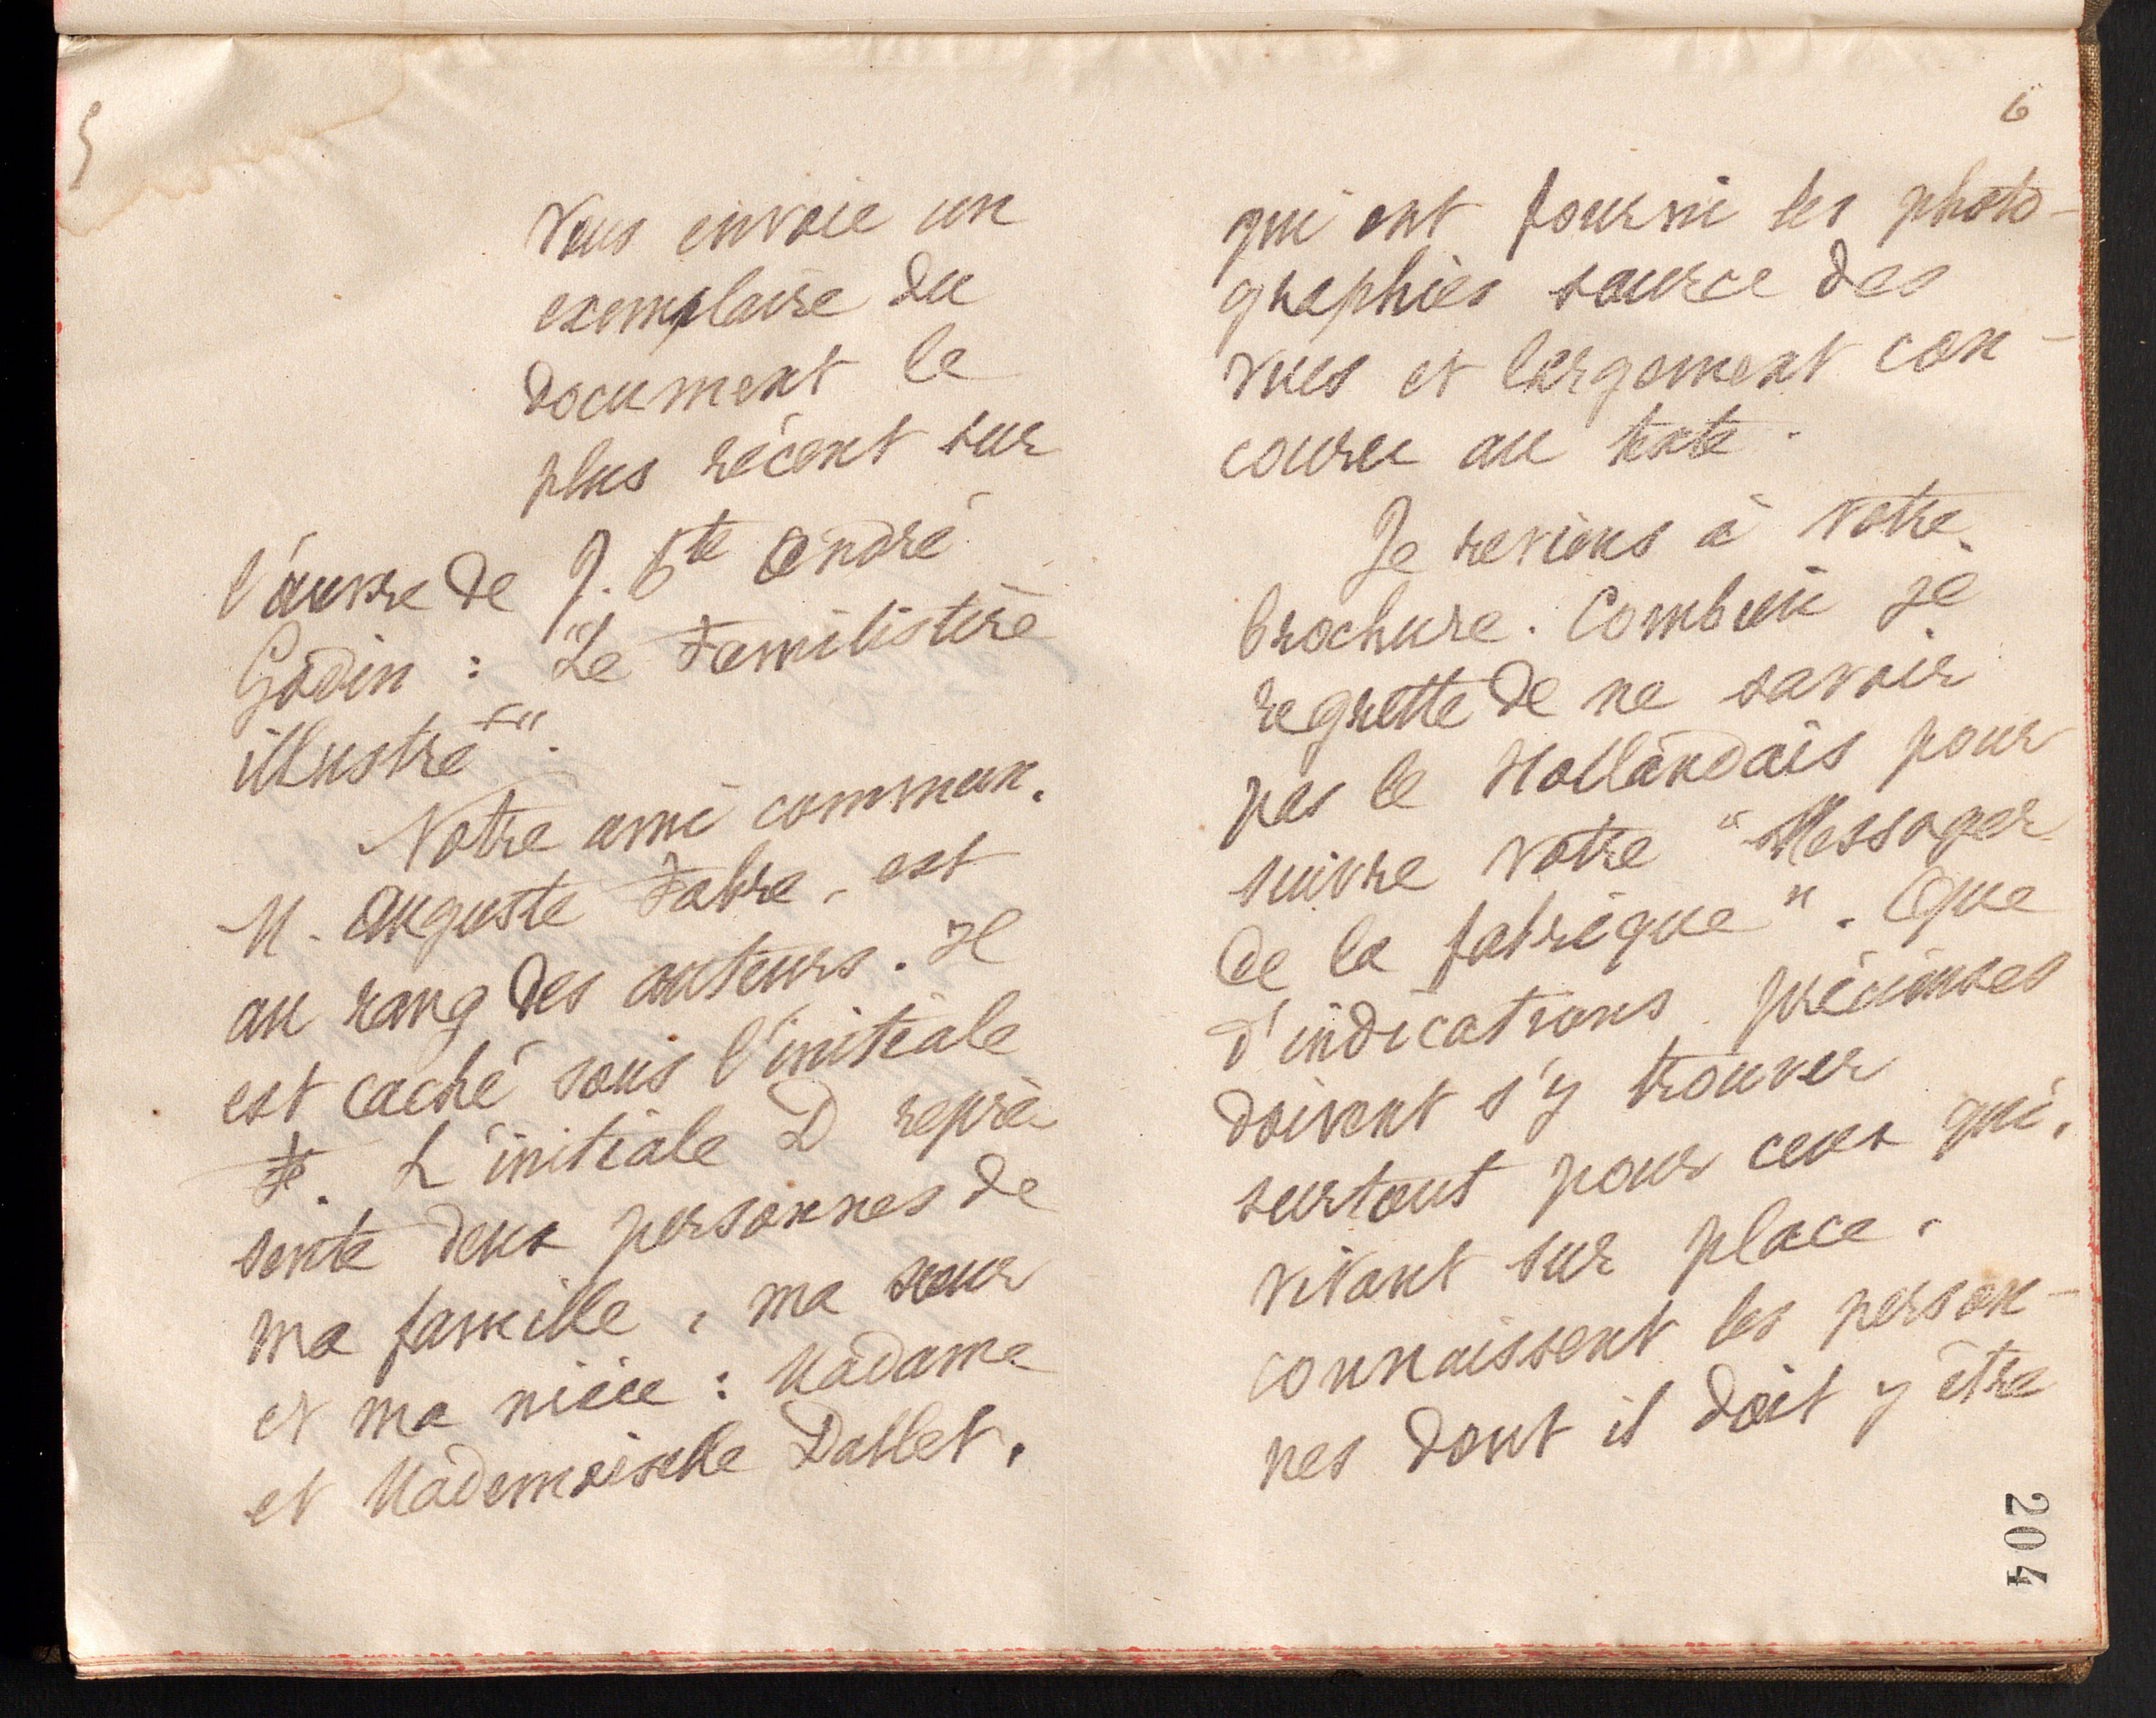 5
vous envoie un
exemplaire du
document le
plus récent sur
l'œuvre de J. Bte André
Godin : "Le Familistère
illustré".
Notre ami commun,
M. Auguste Fabre, est
au rang des auteurs. Il
est caché sous l'initiale
F. L'initiale D repré-
sente deux personnes de
ma famille, ma sœur
et ma nièce : Madame
et Mademoiselle Dallet,
6
qui ont fourni les photo-
graphies source des
vues et largement con-
couru au texte.
Je reviens à votre
brochure. Combien je
regrette de ne savoir
pas le Hollandais pour
suivre votre "Messager
de la fabrique". Que
d'indications précieuses
doivent s'y trouver
surtout pour ceux qui,
vivant sur place,
connaissent les person-
nes dont il doit y être
204